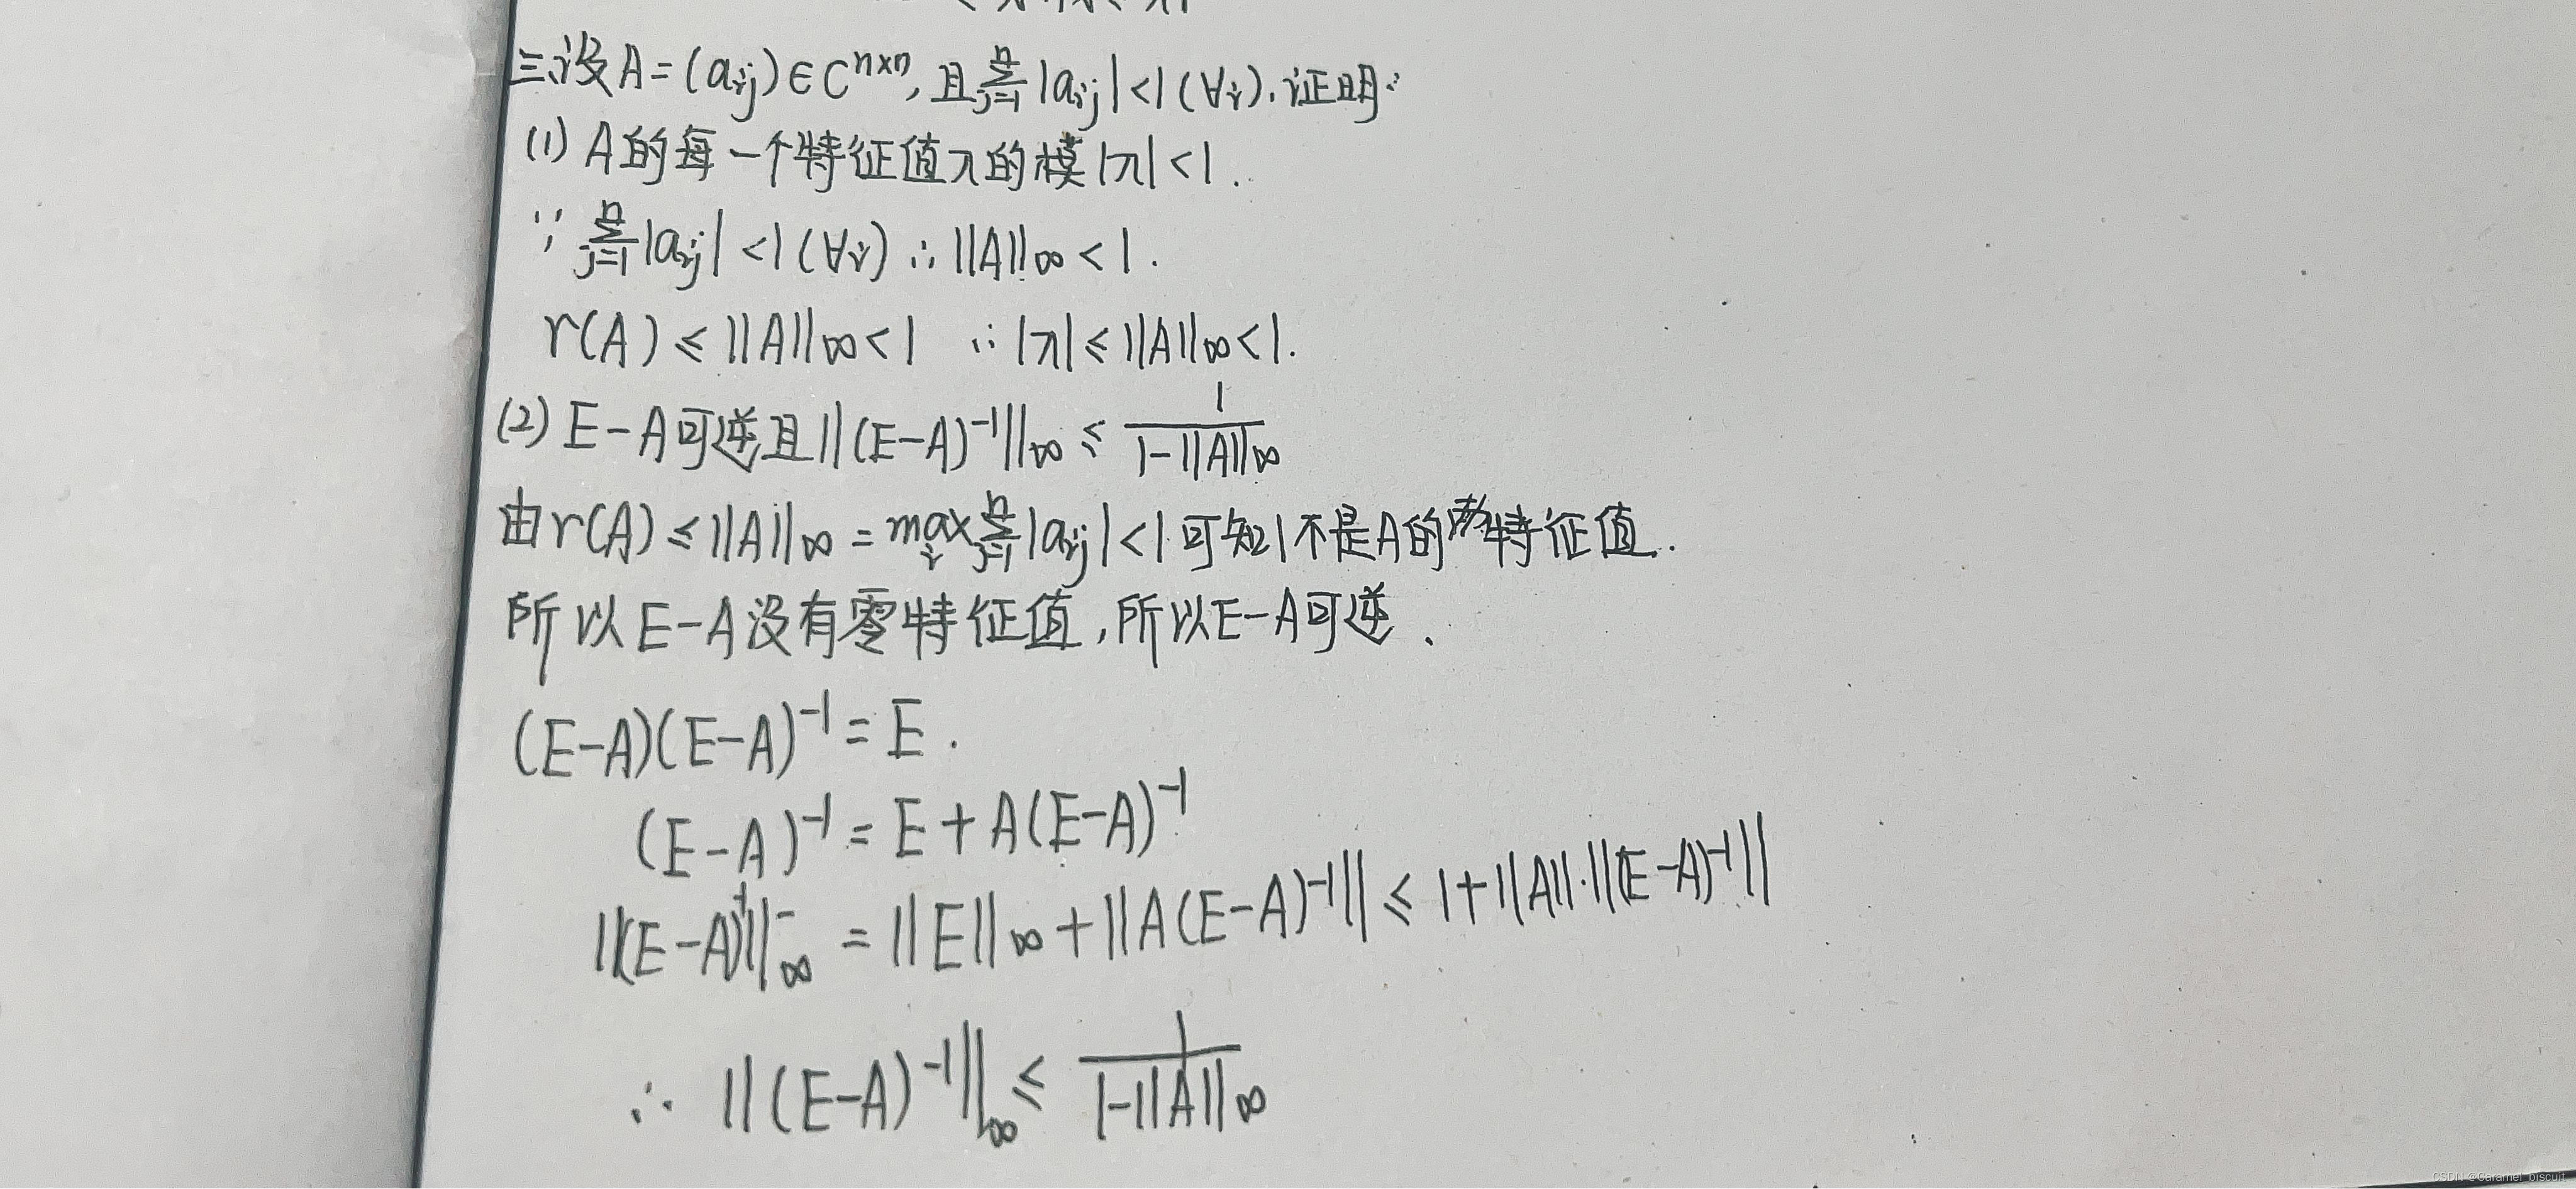 三.设A=(aᵢⱼ)∈Cⁿˣⁿ,且∑ⱼ₌₁ⁿ|aᵢⱼ|<1(∀i).证明:
(1) A的每一个特征值λ的模|λ|<1.
∵ ∑ⱼ₌₁ⁿ|aᵢⱼ|<1(∀i) ∴||A||∞<1.
r(A)≤||A||∞<1 ∴|λ|≤||A||∞<1.
(2) E-A可逆且||(E-A)⁻¹||∞ ≤ 1/(1-||A||∞)
由r(A)≤||A||∞=maxᵢ∑ⱼ₌₁ⁿ|aᵢⱼ|<1可知1不是A的特征值.
所以E-A没有零特征值,所以E-A可逆.
(E-A)(E-A)⁻¹=E.
(E-A)⁻¹=E+A(E-A)⁻¹
||(E-A)⁻¹||∞ = ||E||∞+||A(E-A)⁻¹|| ≤ 1+||A||·||(E-A)⁻¹||
∴ ||(E-A)⁻¹||∞ ≤ 1/(1-||A||∞)
CSDN @Caramel_biscuit